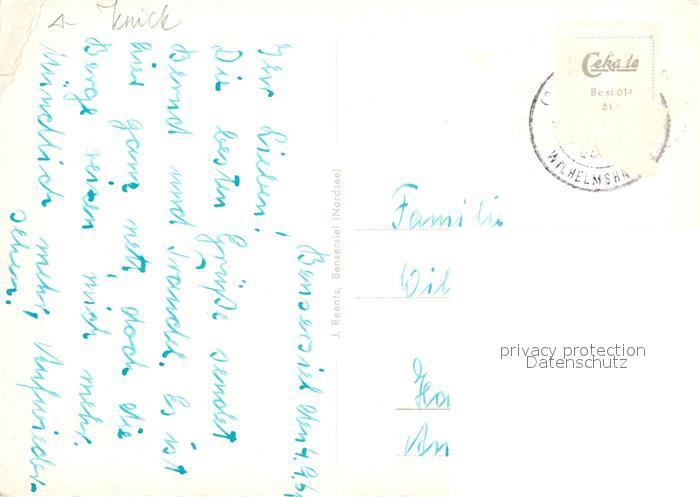 Knick
Bensersiel den 4.9.6
Ihr Lieben!
Die besten Grüße sendet
Bernd und Traudel. Es ist
hier ganz nett, doch die
Berge reizen mich mehr.
Mündlich mehr, Aufwieder-
sehen.
J. Reents, Bensersiel (Nordsee)
Cekade
Besi 014
61
WILHELMSHA
Famili
Wil
Ha
An
privacy protection
Datenschutz